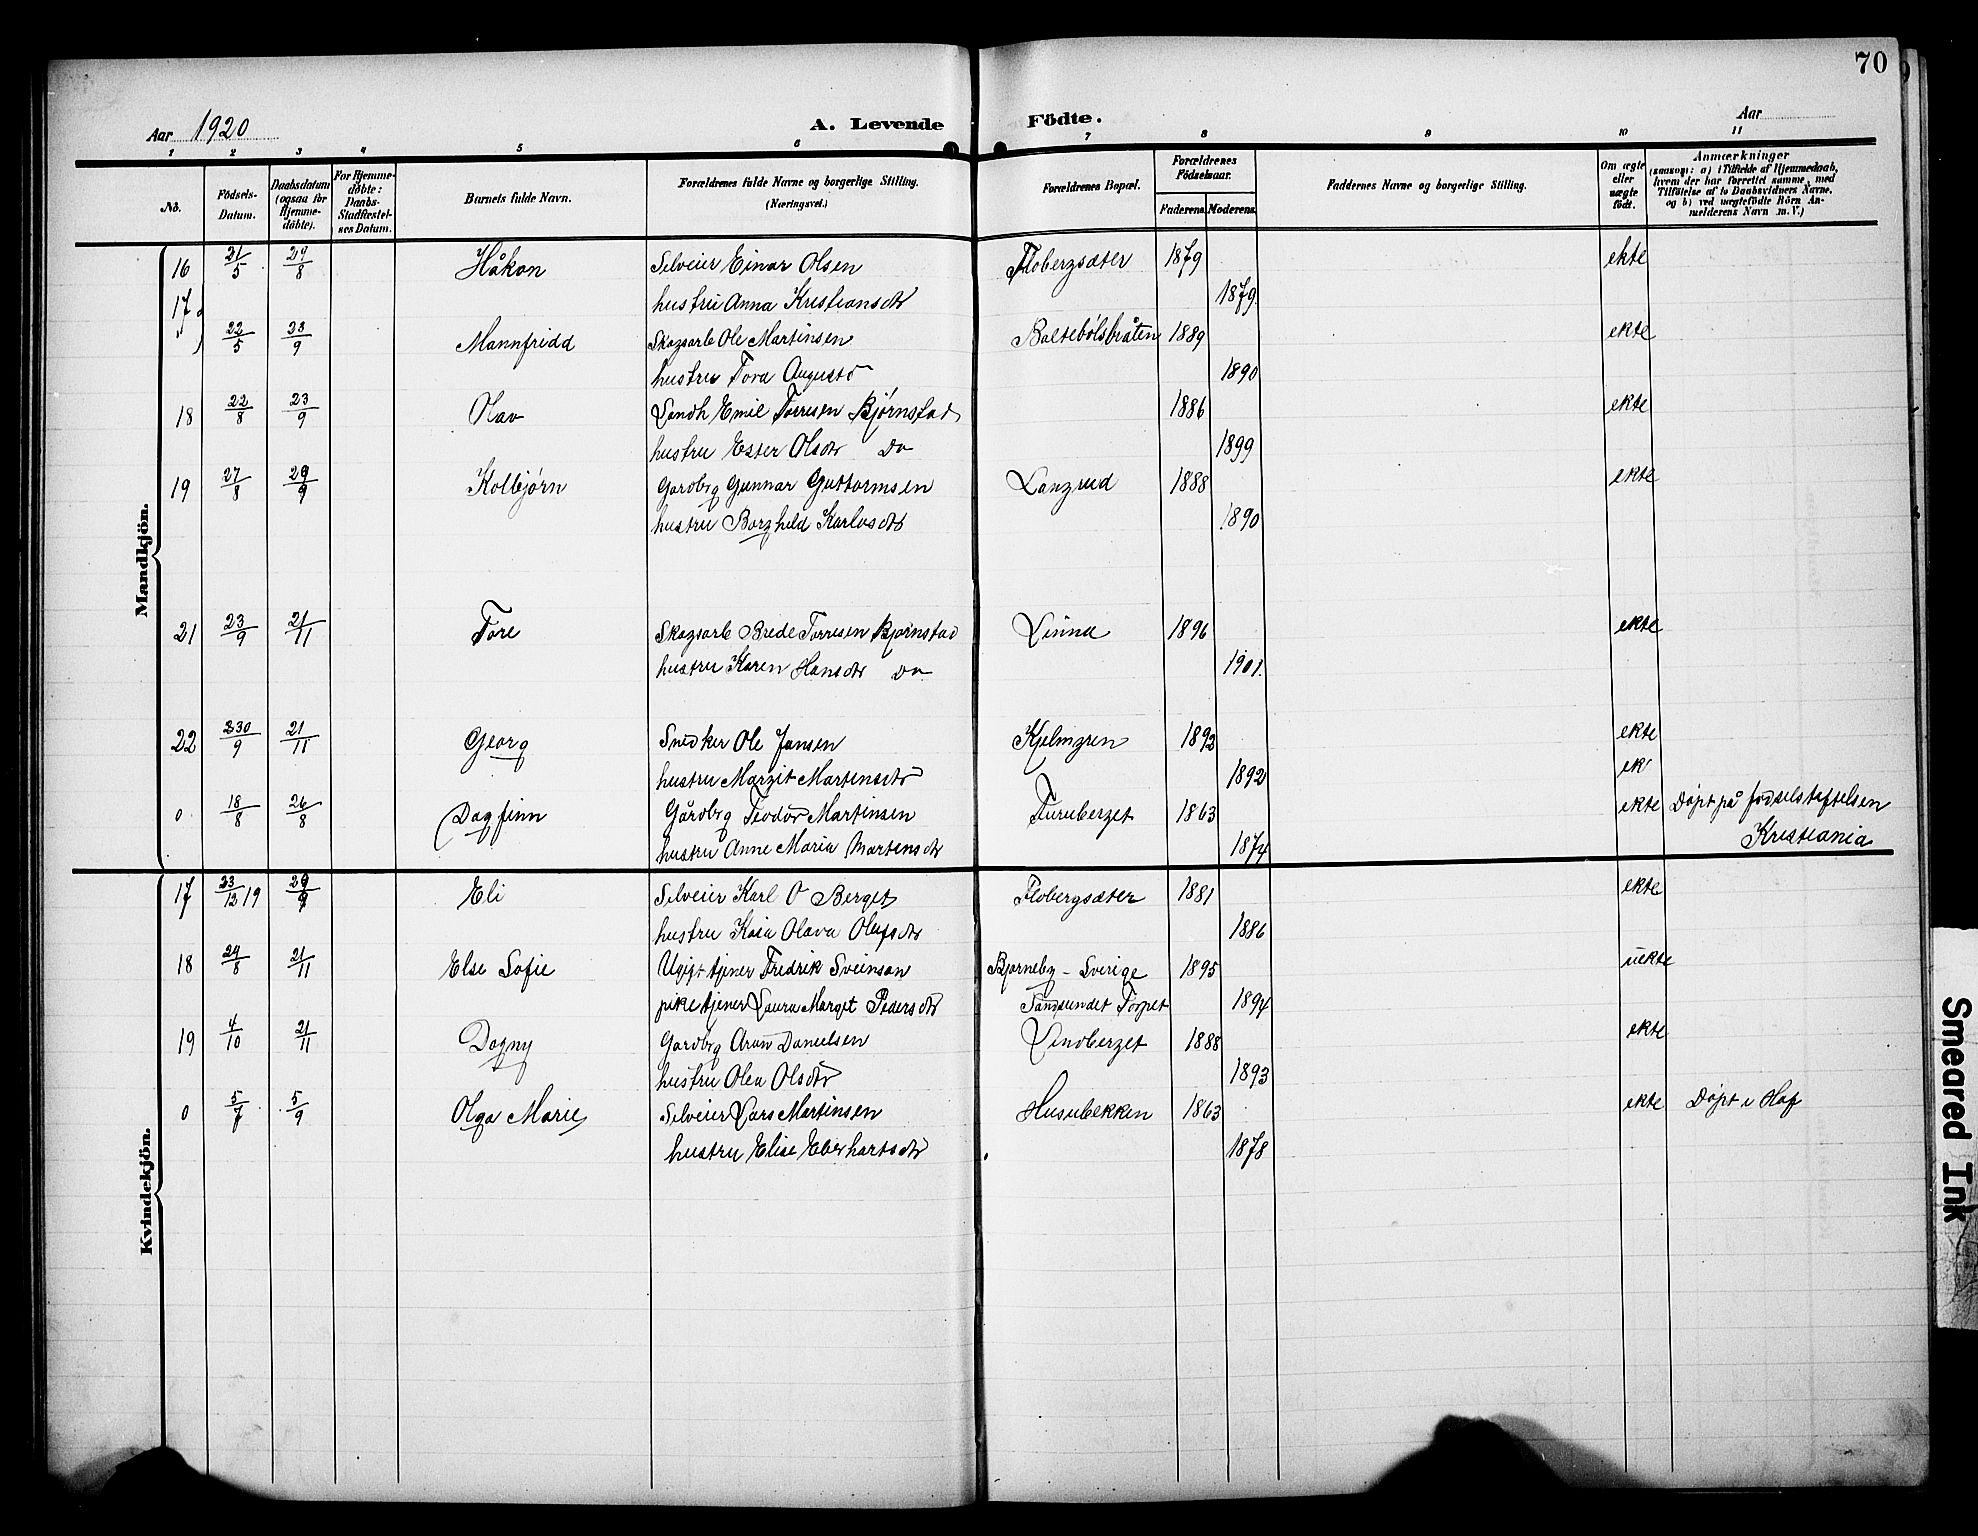 70
Aar 1920
A. Levende Födte.
Aar
1 2 3 4 5 6 7 8 9 10 11
No.
Födsels-
Datum.
Daabsdatum
(ogsaa for
Hjemme-
döbte).
For Hjemme-
döbte:
Daabs-
Stadfæstel-
ses Datum.
Barnets fulde Navn.
Forældrenes fulde Navne og borgerlige Stilling.
(Næringsvei.)
Forældrenes Bopæl.
Forældrenes
Födselsaar.
Faderens. Moderens.
Faddernes Navne og borgerlige Stilling.
Om ægte
eller
uægte
födt.
Anmærkninger
(saasom: a) i Tilfælde af Hjemmedaab,
hvem der har forrettet samme, med
Tilföielse af to Daabsvidners Navne,
og b) ved uægtefödte Börn An-
melderens Navn m. V.)
Mandkjön.
16 21/5 29/8 Håkon Selveier Einar Olsen Flobergsæter 1879 ekte
hustru Anna Kristiansdtr 1879
17
22/5 23/9 Mannfridd Skogsarb Ole Martinsen Baltebølsbråten 1889 ekte
hustru Tora Augustd 1890
18 22/8 23/9 Olav Landh Emil Torresen Bjørnstad 1886 ekte
hustru Ester Olsdtr Do 1899
19 27/8 29/9 Kolbjørn Gardbrg Gunnar Guttormsen Langrud 1888 ekte
hustru Borghild Karlusdtr 1890
21 23/9 21/11 Tore Skogsarb Brede Torresen Bjørnstad Linna 1896 ekte
hustru Karen Hansdtr Do 1901.
22 30/9 21/11 Georg Snedker Ole Jansen Kjelmgren 1892 ekte
hustru Margit Martensdtr 1892 ek
0 18/8 26/8 Dagfinn Gårdbrg Teodor Martinsen Furuberget 1863 ekte Døpt på fødselstiftelsen
hustru Anne Maria Martensdtr 1874 Kristiania
Kvindekjön.
17 23/12 19 29/9 Eli Selveier Karl O Berget Flobergsæter 1881 ekte
hustru Kaia Olava Olufsdtr 1886
18 24/8 21/11 Else Sofie Ugift tjener Fredrik Sveinson Bjørneby - Sverige 1895 uekte
pike tjener Laura Marget Pedersdtr Sandsundet Torpet 1894
19 4/10 21/11 Dagny Gardbrg Aron Danielsen Lindberget 1888 ekte
hustru Olea Olsdtr 1893
0 5/7 5/9 Olga Marie Selveier Lars Martinsen Husubekken 1863 ekte Døpt i Hof
hustru Elise Eberhartsdtr 1878
Smeared Ink